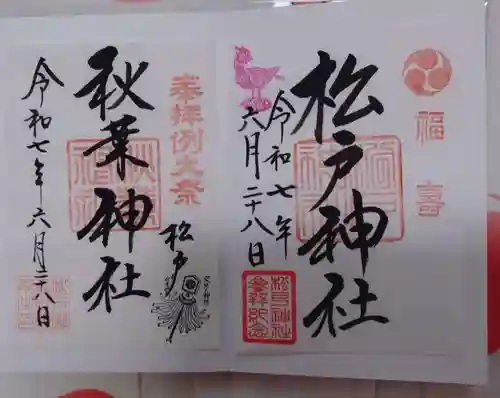 福寿
松戸神社
令和七年
六月二十八日
松戸神社
参拝記念
奉拝例大祭
秋葉神社
松戸
令和七年六月二十八日